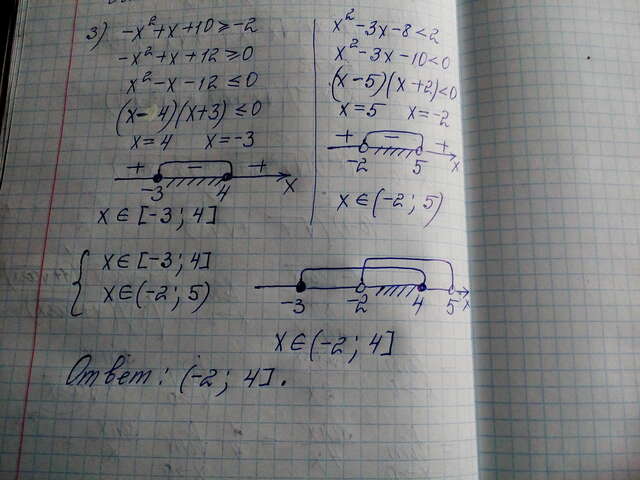 3) -x²+x+10 ≥ -2
-x²+x+12 ≥ 0
x²-x-12 ≤ 0
(x-4)(x+3) ≤ 0
x=4 x=-3
+ - +
-3 4 x
x ∈ [-3; 4]
x²-3x-8<2
x²-3x-10<0
(x-5)(x+2)<0
x=5 x=-2
+ - +
-2 5 x
x ∈ (-2; 5)
{ x ∈ [-3; 4]
x ∈ (-2; 5)
-3 -2 4 5 x
x ∈ (-2; 4]
Ответ: (-2; 4].